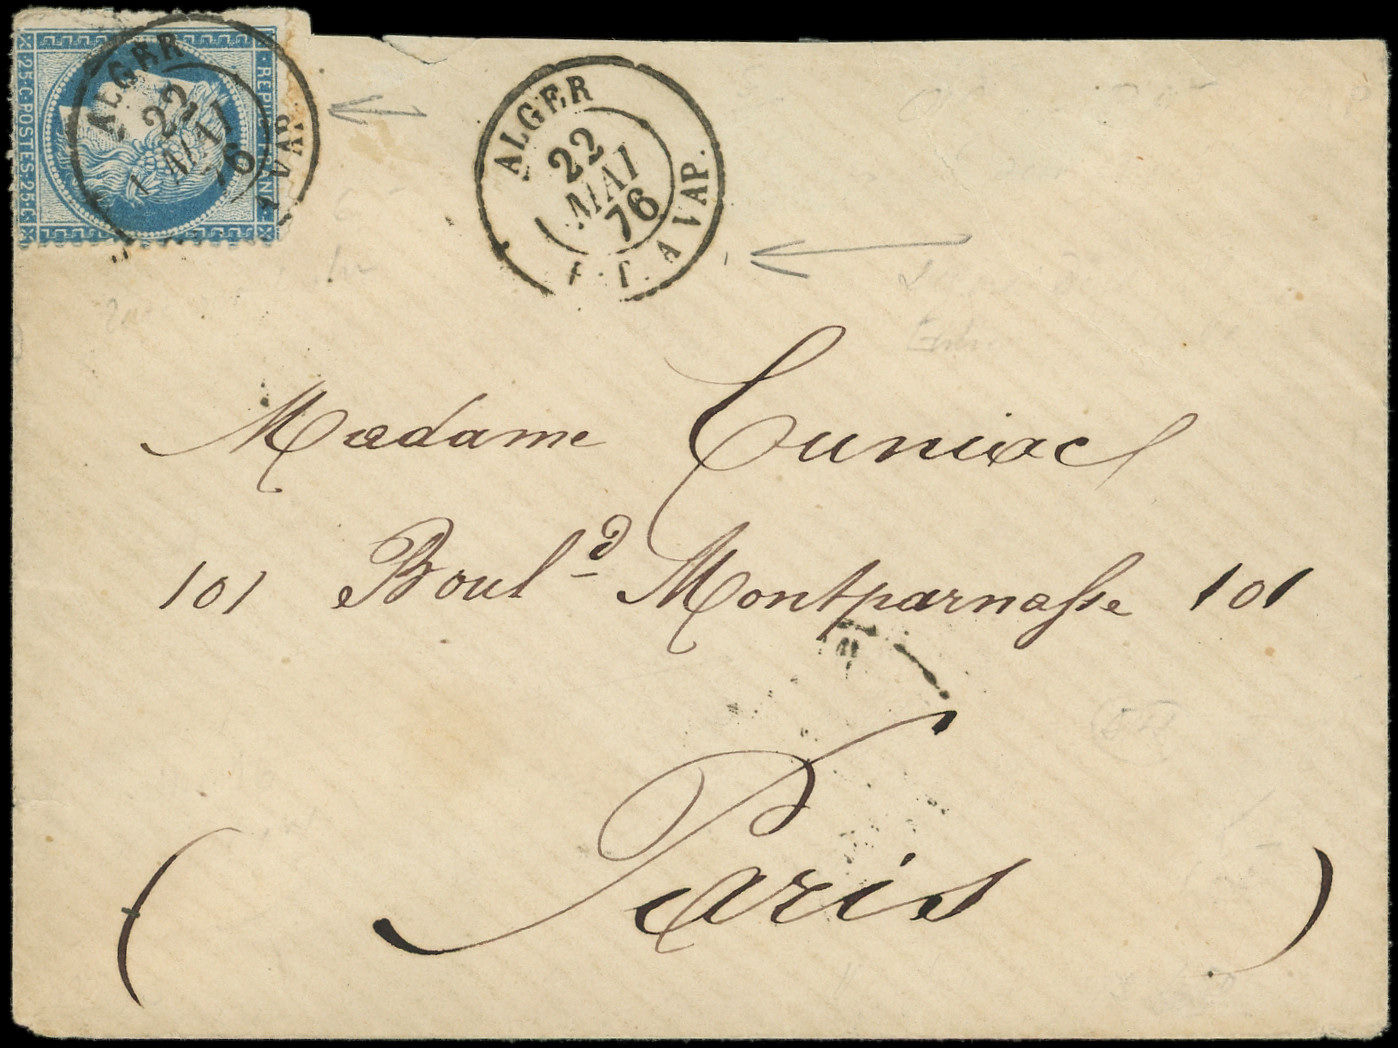 25·C·POSTES·25·C
REPUB·FRANC
ALGER
22
MAI
76
A VAP.
ALGER
22
MAI
76
P.T. A VAP.
Madame Cuniac
101 Boul.d Montparnasse 101
( Paris )